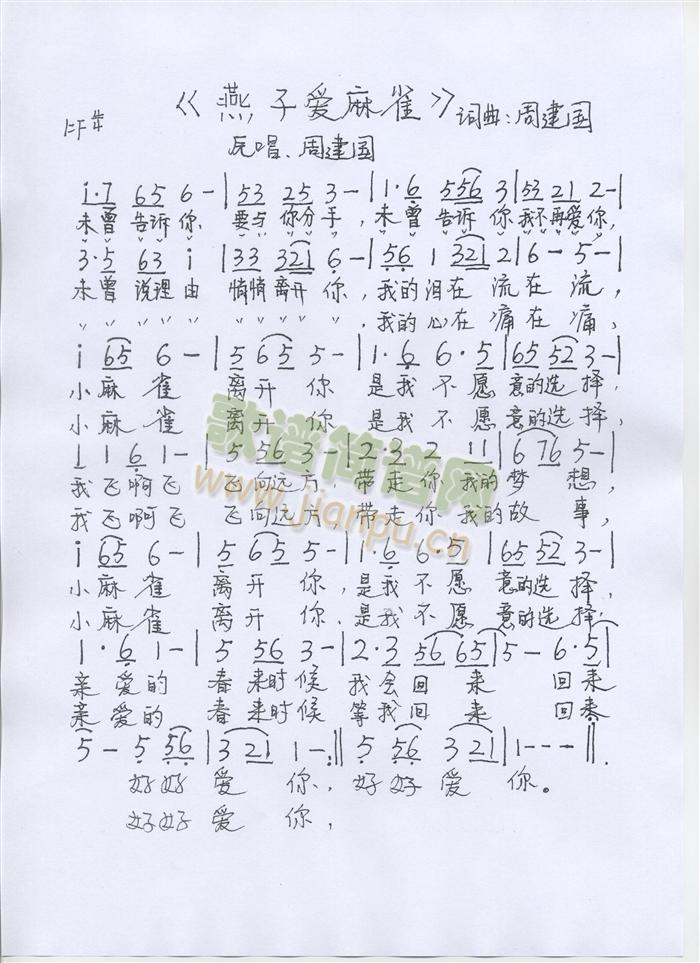 《燕子爱麻雀》 词曲:周建国
1=F 4/4
原唱、周建国
i·7 65 6-|53 25 3-|1·6 556 3|53 21 2-|
未曾 告诉 你 要与 你分 手, 未曾 告诉 你 我不 再爱 你,
3·5 63 i|33 321 6-|56 1 321 2|6- 5-|
未曾 说理 由 悄悄 离开 你, 我的 泪在 流在 流,
" " " " " " " " " " 我的 心在 痛在 痛,
i 65 6-|5 65 5-|1·6 6·5|65 52 3-|
小 麻 雀 离 开 你 是我 不 愿 意的 选 择,
小 麻 雀 离 开 你 是我 不 愿 意的 选 择,
1 1 6 1-|5 56 3-|2·3 2 11|6 76 5-|
我 飞 啊 飞 飞 向远 方, 带 走 你 我的 梦 想,
我 飞 啊 飞 飞 向远 方, 带 走 你 我的 故 事,
i 65 6-|5 65 5-|1·6 6·5|65 52 3-|
小 麻 雀 离 开 你, 是我 不 愿 意的 选 择,
小 麻 雀 离 开 你, 是我 不 愿 意的 选 择,
1·6 1-|5 56 3-|2·3 56 65|5- 6·5|
亲 爱 的 春 来时 候 我 会 回 来 回 来
亲 爱 的 春 来时 候 等 我 回 来 回 来
5- 5 56|3 21 1-:|| 5 56 3 21|1---||.
好 好 爱 你, 好 好 爱 你。
好 好 爱 你,
歌谱简谱网
www.jianpu.cn